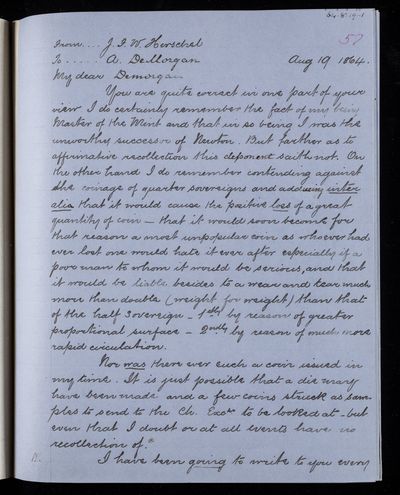 64·8·19·1
57
From... J. F. W. Herschel
To..... A. DeMorgan Aug 19 1864.
My dear Demorgan
You are quite correct in one part of your
view I do certainly remember the fact of my being
Master of the Mint and that in so being I was the
unworthy successor of Newton. But farther as to
affirmative recollection this deponent saith not. On
the other hand I do remember contending against
the coinage of quarter sovereigns and adducing inter
alia that it would cause the positive loss of a great
quantity of coin – that it would soon become for
that reason a most unpopular coin as whoever had
ever lost one would hate it ever after especially if a
poor man to whom it would be serious, and that
it would be liable besides to a wear and tear much
more than double (weight for weight) than that
of the half sovereign – 1stly by reason of greater
proportional surface – 2ndly by reason of much more
rapid circulation.
Nor was there ever such a coin issued in
my time. It is just possible that a die may
have been made and a few coins struck as sam-
ples to send to the Ch. Excr to be looked at – but
even that I doubt or at all events have no
recollection of.
I have been going to write to you every